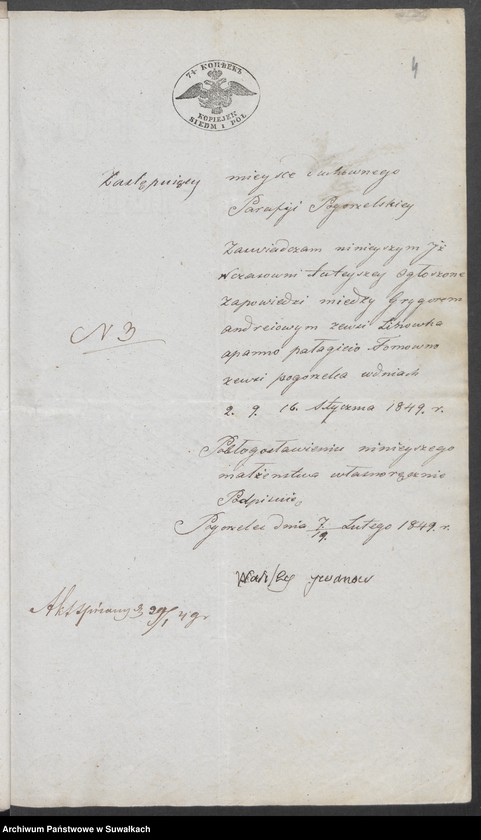 4
7½ КОПѢЕКЪ
KOPIEJEK
SIEDM I PÓŁ
Zastępuiący mieysce Duchownego
Parafiji Pogorzelskiey
Zaswiadczam ninieyszym Jż
Wczasowni tuteyszey ogłoszone
zapowiedzi między Grygorem
andreiowym zewsi Lipowka
apanno pałagieio Fomowno
N 3
zewsi pogorzelca wdniach
2. 9. 16. Stycznia 1849. r.
Pobłogosławieniu ninieyszego
małzenstwa własnoręcznie
Podpisuię
Pogorzelec dnia 7/19. Lutego 1849. r.
Jwanow
Akt spisany 29/1 49 r
Archiwum Państwowe w Suwałkach